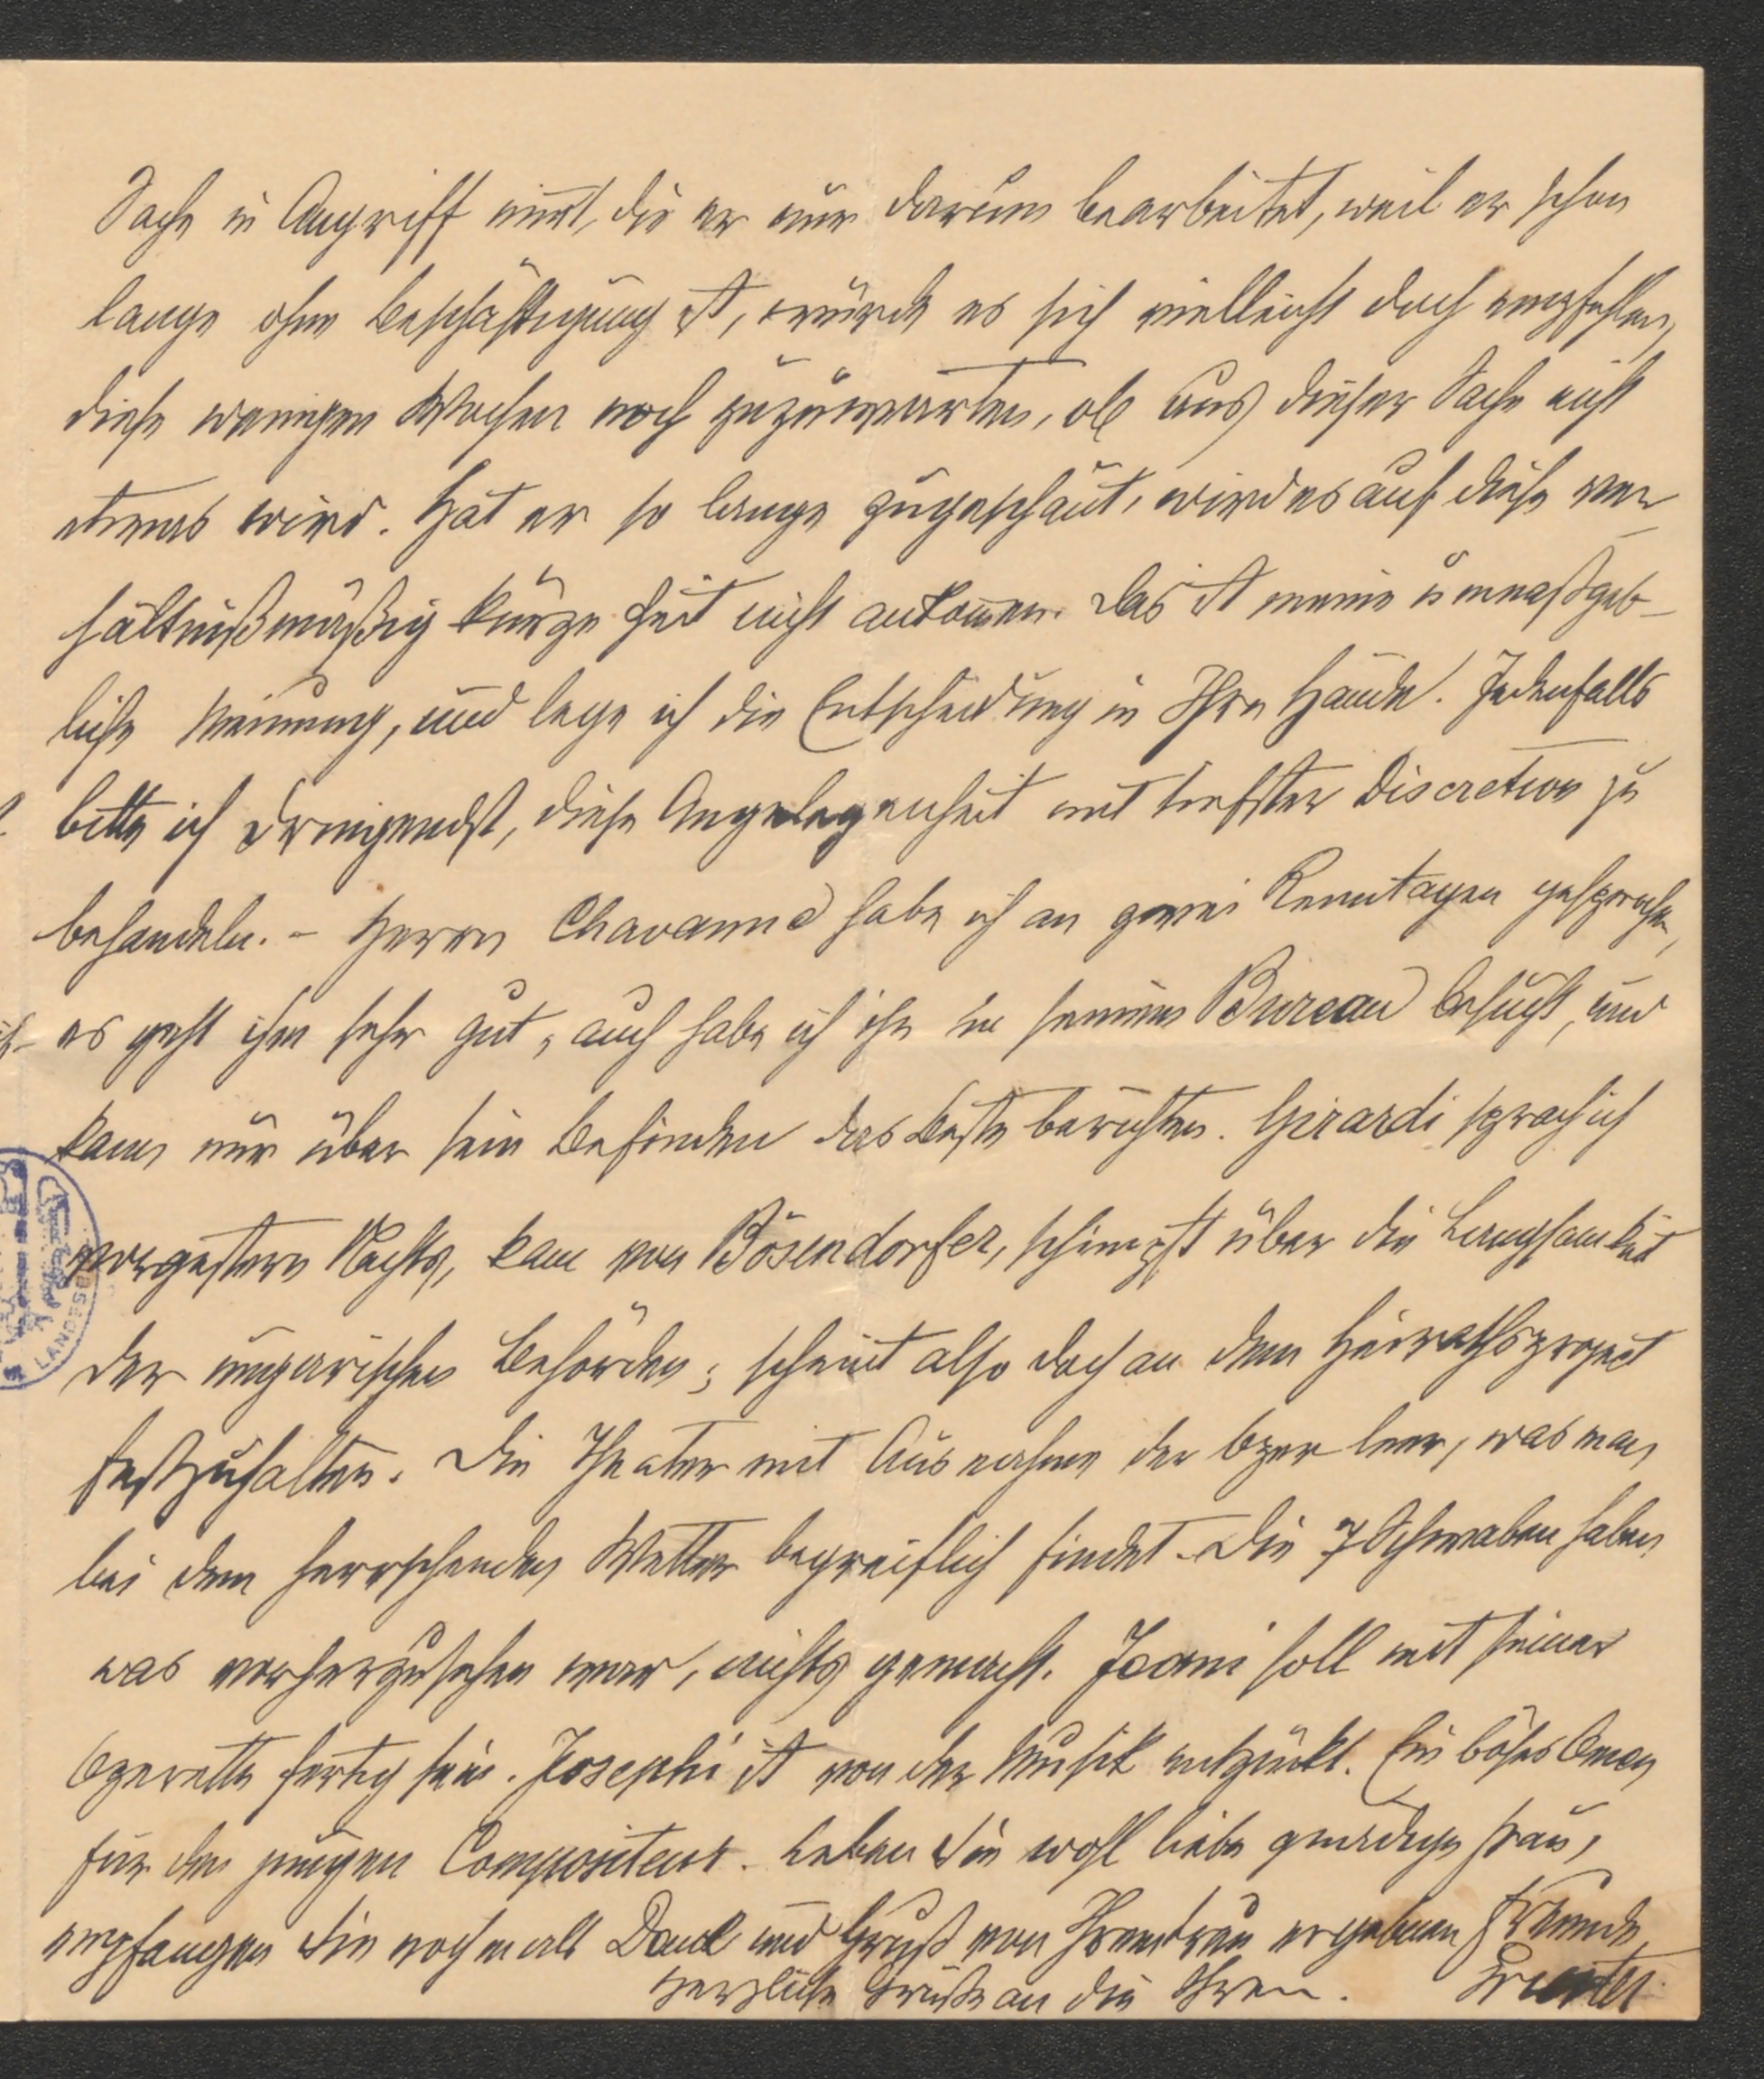 Sache in Angriff nim̅t, die er nur darum bearbeitet, weil er schon
lange ohne Beschäftigung ist, würde es sich vielleicht doch empfehlen,
diese wenigen Wochen noch zuzuwarten, ob aus dieser Sache nicht
etwas wird. Hat er so lange zugeschaut, wird es auf diese ver-
hältnißmäßig kurze Zeit nicht ankom̅en. Das ist meine unmaßgeb-
liche Meinung, und lege ich die Entscheidung in Ihre Hände. Jedenfalls
bitte ich dringendst, diese Angelegenheit mit tiefster Discretion zu
behandeln. – Herrn Chavanne habe ich an zwei Renntagen gesprochen,
es geht ihm sehr gut, auch habe ich ihn in seinem Bureau besucht, und
kann nur über sein Befinden das Beste berichten. Girardi sprach ich
vorgestern Nachts, kam von Bösendorfer, schimpft über die Langsamkeit
der ungarischen Behörden; scheint also doch an dem Heirathsproject
festzuhalten. Die Theater mit Ausnahme der Oper leer, was man
bei dem herrschenden Wetter begreiflich findet. Die 7 Schwaben haben
was vorherzusehen war, nichts gemacht. Jxxmi soll mit seiner
Operette fertig sein. Josephi ist von der Musik entzückt. Ein böses Omen
für den jungen Compositeur. Leben Sie wohl liebe gnädige Frau,
empfangen Sie nochmals Dank und Gruß von Ihrem treu ergebenen Freunde
Herzliche Grüße an die Ihren.
LANDESB